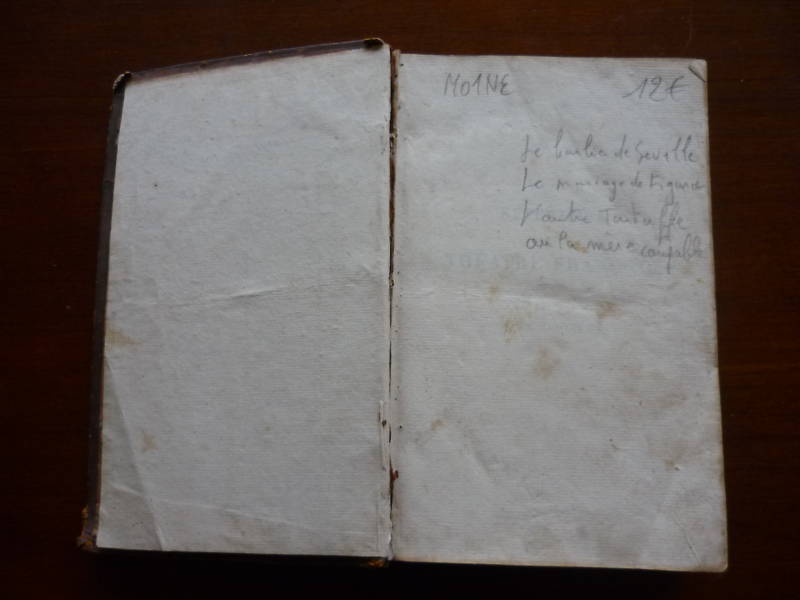 MOINE 12€
Le barbier de Seville
Le mariage de Figaro
L'autre Tartuffe
ou la mère coupable